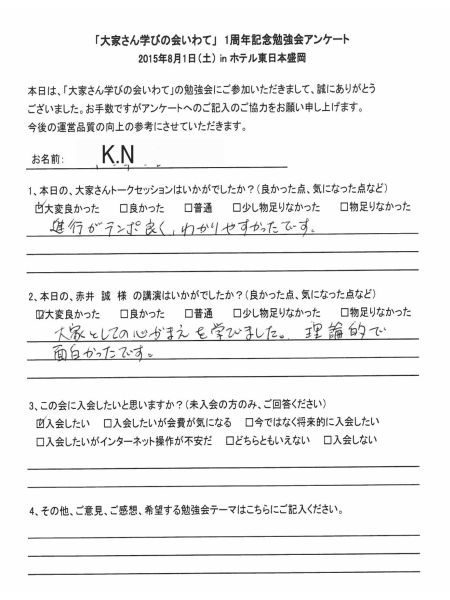 「大家さん学びの会いわて」 1周年記念勉強会アンケート
2015年8月1日(土) in ホテル東日本盛岡
本日は、「大家さん学びの会いわて」の勉強会にご参加いただきまして、誠にありがとう
ございました。お手数ですがアンケートへのご記入のご協力をお願い申し上げます。
今後の運営品質の向上の参考にさせていただきます。
お名前: K.N
1、本日の、大家さんトークセッションはいかがでしたか?(良かった点、気になった点など)
☑大変良かった □良かった □普通 □少し物足りなかった □物足りなかった
進行がテンポ良く、わかりやすかったです。
2、本日の、赤井 誠 様 の講演はいかがでしたか?(良かった点、気になった点など)
☑大変良かった □良かった □普通 □少し物足りなかった □物足りなかった
大家としての心がまえを学びました。 理論的で
面白かったです。
3、この会に入会したいと思いますか?(未入会の方のみ、ご回答ください)
☑入会したい □入会したいが会費が気になる □今ではなく将来的に入会したい
□入会したいがインターネット操作が不安だ □どちらともいえない □入会しない
4、その他、ご意見、ご感想、希望する勉強会テーマはこちらにご記入ください。